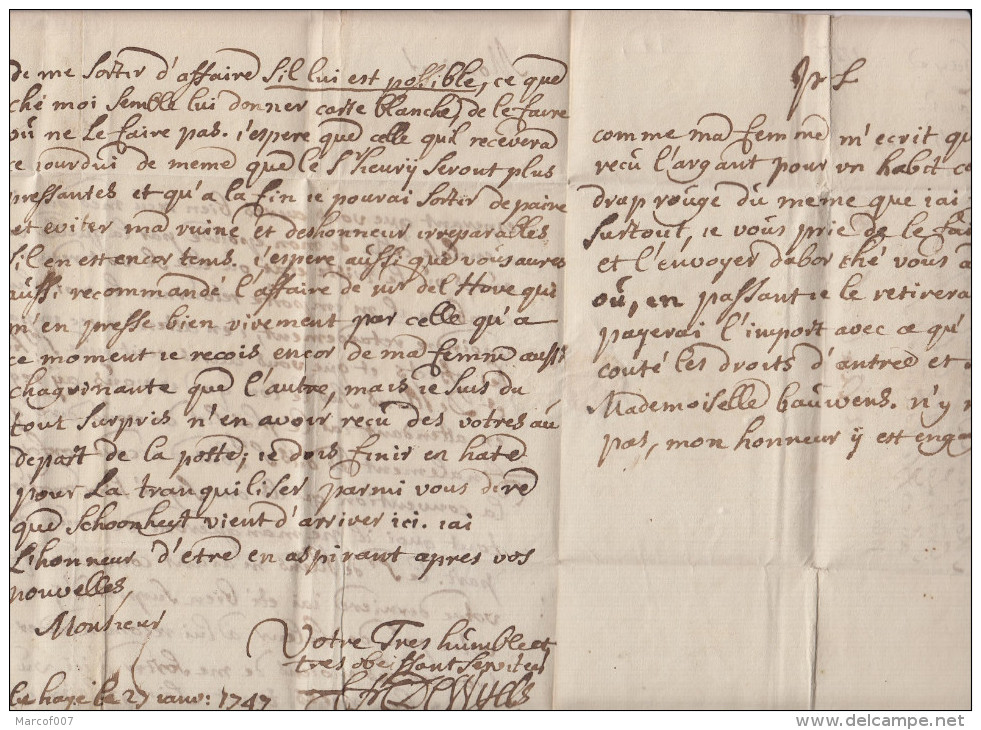 de me sortir d'affaire s'il lui est possible, ce que
ché moi semble lui donner carte blanche, de le faire
où ne le faire pas. i'espere que celle quil recevera
ce iourdui de meme que le Sr fleurÿ seront plus
pressantes et qu'a la fin ie pourai sortir de paine
et eviter ma ruine et deshonneur irreparalles
sil en est encor tems. i'espere aussi que vous aures
aussi recommandé l'affaire de vir del Hove qui
m'en presse bien vivement par celle qu'a
ce moment ie recois encor de ma femme aussi
chagrinante que l'autre, mais ie suis du
tout surpris n'en avoir recu des votres au
depart de la poste; ie dois finir en hate
pour la tranquiliser parmi vous dire
que Schoonheyt vient d'arriver ici. iai
l'honneur d'etre en aspirant apres vos
nouvelles,
Monsieur
Votre Tres humble et
tres obeissant serviteur
DeWulls
la haye le 27 ianv: 1747
comme ma femme m'ecrit qu
recu l'argant pour un habit
drap rouge du meme que iai
surtout, ie vous prie de le fai
et l'envoyer dabor ché vous
où, en passant ie le retirera
payerai l'import avec ce qu'
couté les droits d'antree et
Mademoiselle bauwens. n'y
pas, mon honneur ÿ est enga
Marcof007
www.delcampe.net